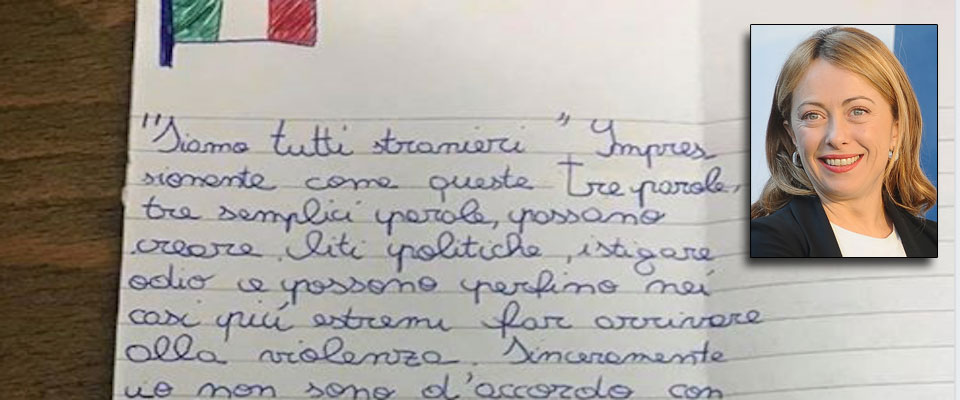 "Siamo tutti stranieri" Impres
sionante come queste tre parole,
tre semplici parole, possano
creare liti politiche, istigare
odio e possono perfino nei
casi piú estremi far arrivare
alla violenza. Sinceramente
io non sono d'accordo con